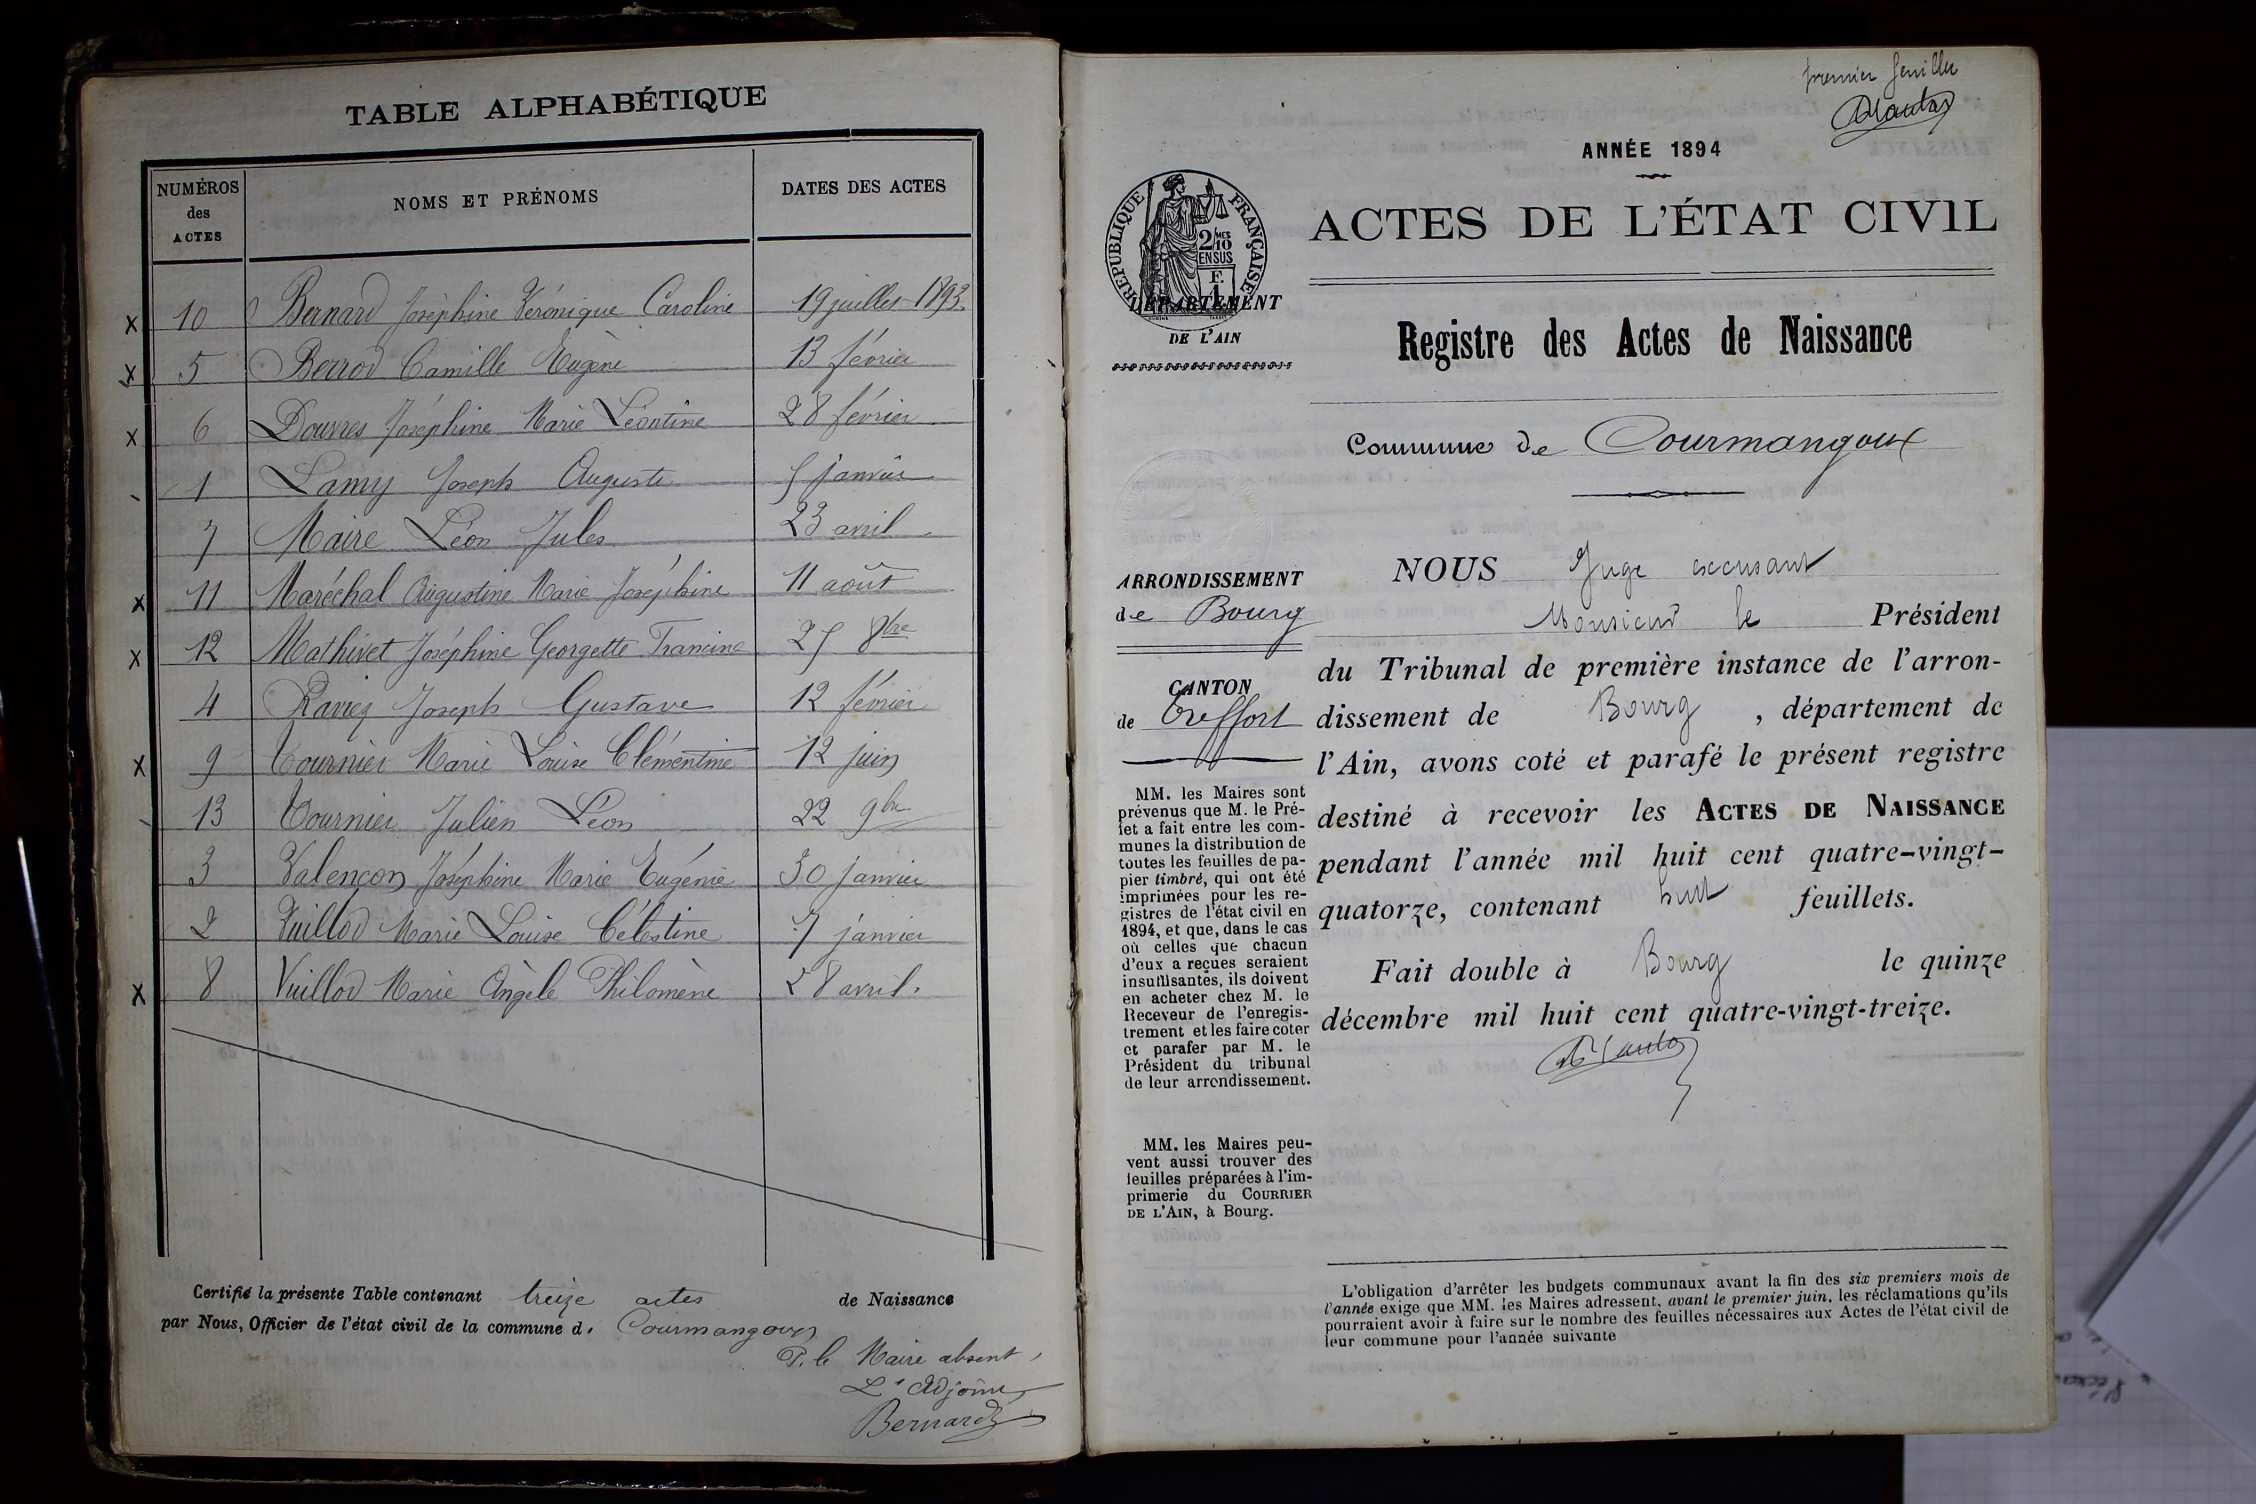 TABLE ALPHABÉTIQUE
NUMÉROS des ACTES NOMS ET PRÉNOMS DATES DES ACTES
x 10 Bernard Joséphine Véronique Caroline 19 juillet 1893.
x 5 Berrod Camille Eugène 13 février
x 6 Douvres Joséphine Marie Léontine 28 février
1 Lamy Joseph Auguste 5 janvier
7 Maire Léon Jules 23 avril
x 11 Maréchal Augustine Marie Joséphine 11 août
x 12 Mathivet Joséphine Georgette Francine 25 8bre
4 Raviez Joseph Gustave 12 février
x 9 Tournier Marie Louise Clémentine 12 juin
13 Tournier Julien Léon 22 9bre
3 Valençon Joséphine Marie Eugénie 30 janvier
2 Vuillod Marie Louise Célestine 7 janvier
x 8 Vuillod Marie Angèle Philomène 28 avril.
Certifié la présente Table contenant treize actes de Naissance
par Nous, Officier de l'état civil de la commune d. Courmangoux
P. le Maire absent,
L'Adjoint
Bernard
premier feuillet
ANNÉE 1894
RÉPUBLIQUE FRANÇAISE
2/10 MES
EN SUS
F.
1
DÉPARTEMENT
DE L'AIN
ACTES DE L'ÉTAT CIVIL
Registre des Actes de Naissance
Commune de Courmangoux
ARRONDISSEMENT
de Bourg
CANTON
de Treffort
MM. les Maires sont
prévenus que M. le Pré-
fet a fait entre les com-
munes la distribution de
toutes les feuilles de pa-
pier timbré, qui ont été
imprimées pour les re-
gistres de l'état civil en
1894, et que, dans le cas
où celles que chacun
d'eux a reçues seraient
insuffisantes, ils doivent
en acheter chez M. le
Receveur de l'enregis-
trement et les faire coter
et parafer par M. le
Président du tribunal
de leur arrondissement.
MM. les Maires peu-
vent aussi trouver des
feuilles préparées à l'im-
primerie du COURRIER
DE L'AIN, à Bourg.
NOUS Juge excusant
Monsieur le Président
du Tribunal de première instance de l'arron-
dissement de Bourg, département de
l'Ain, avons coté et parafé le présent registre
destiné à recevoir les ACTES DE NAISSANCE
pendant l'année mil huit cent quatre-vingt-
quatorze, contenant huit feuillets.
Fait double à Bourg le quinze
décembre mil huit cent quatre-vingt-treize.
L'obligation d'arrêter les budgets communaux avant la fin des six premiers mois de
l'année exige que MM. les Maires adressent, avant le premier juin, les réclamations qu'ils
pourraient avoir à faire sur le nombre des feuilles nécessaires aux Actes de l'état civil de
leur commune pour l'année suivante